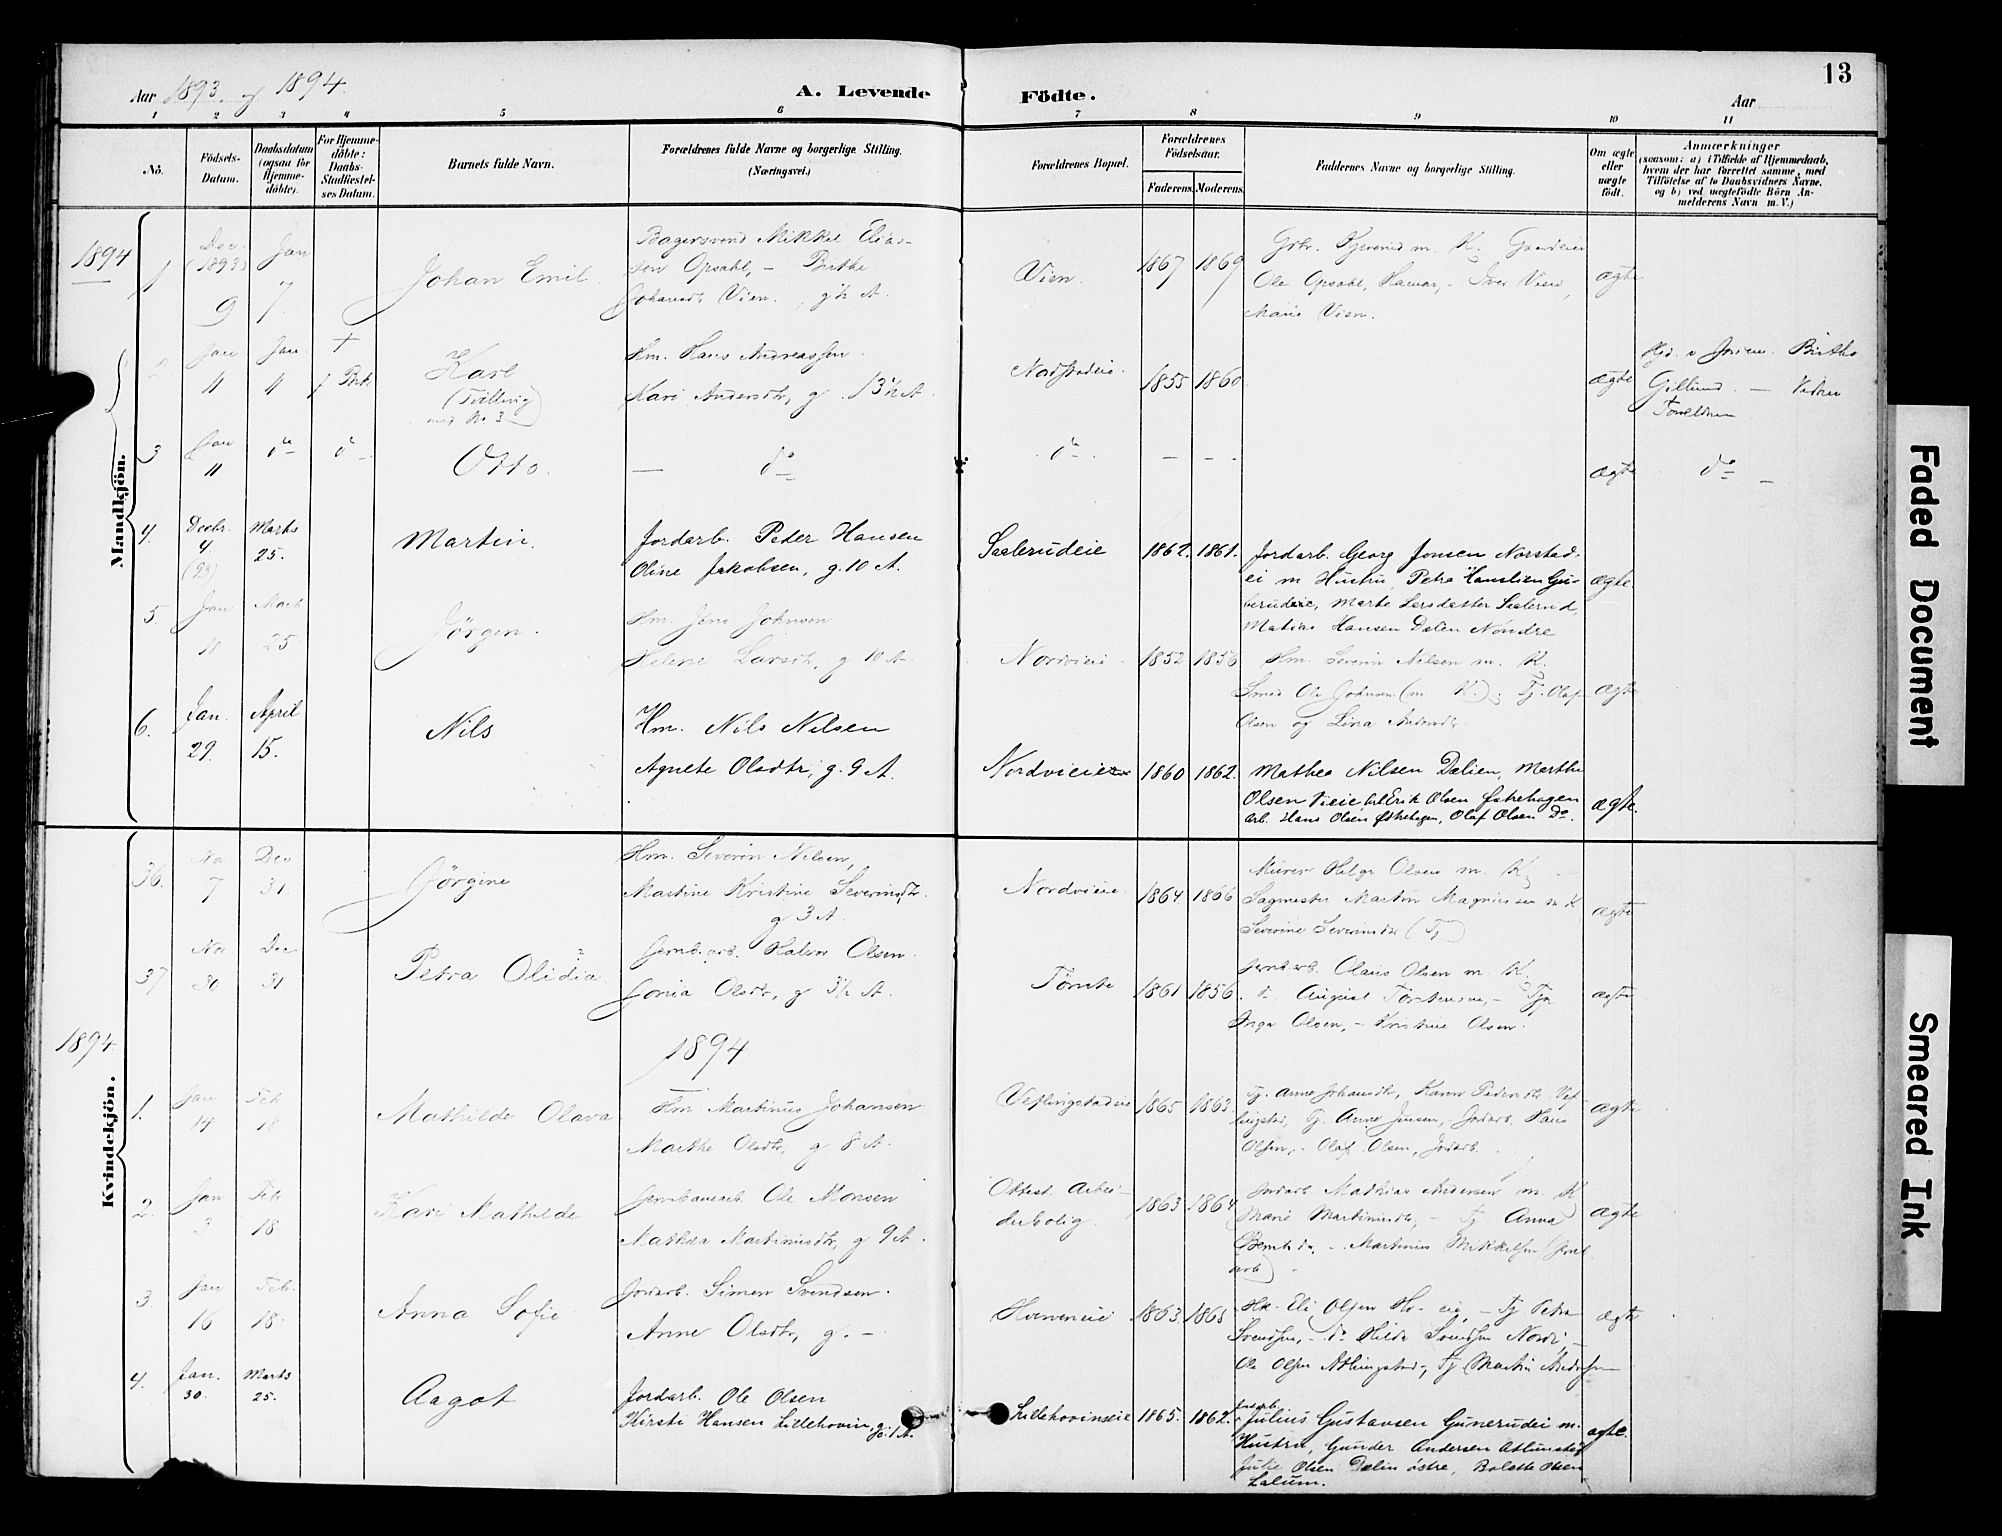 13
Aar 1893 og 1894.
A. Levende Födte.
Aar
1 2 3 4 5 6 7 8 9 10 11
No.
Födsels-Datum.
Daabsdatum (ogsaa for Hjemmedöbte).
For Hjemmedöbte: Daabs-Stadfæstelses Datum.
Barnets fulde Navn.
Forældrenes fulde Navne og borgerlige Stilling.
(Næringsvei.)
Forældrenes Bopæl.
Forældrenes Födselsaar.
Faderens. Moderens.
Faddernes Navne og borgerlige Stilling.
Om ægte eller uægte födt.
Anmærkninger
(saasom: a) i Tilfælde af Hjemmedaab, hvem der har forrettet samme, med Tilföielse af to Daabsvidners Navne, og b) ved uægtefödte Börn Anmelderens Navn m. V.)
Mandkjön.
1894
1 Dec. (1893) 9 Jan 7 Johan Emil
Bagersvend Mikkel Elias-
sen Opsahl, - Birthe
Johansdr Vien. , g ½ A.
Vien. 1867 1869
Gbr. m. K. Gaardeier
Ole Opsahl, Hamar, - Iver Vien,
Marie Vien.
ægte
2 Jan 11 Jan 11 +
Karl
(Tvilling
med No 3)
Hm. Hans Andreassen
Kari Andersdtr, g. 13½ A.
Nordstadeie 1855 1860
ægte
Hjd. v Jordm. Birthe
Gillund - Vidner
Forældrene
3 Jan 11 do do Otto. — do
do - - - ægte do -
4. Decbr. 4. (93) Marts 25. Martin.
Jordarb. Peder Hansen
Oline Jakobsen, g. 10 A.
Saelerudeie 1862. 1861.
Jordarb. Georg Jonsen Norstad-
ei m Hustru, Petra Hanslien Gu-
berudeie, Marte Larsdatter Saelerud,
Matias Hansen Dælen Nøndre
ægte
5. Jan 18 Marts 25 Jörgen.
Hm. Jens Johnsen
Helene Larsdtr, g 10 A.
Nordvieie 1852 1856
Hm. Severin Nilsen m. K.
Smed Ole Johnsen (m K.); Tj. Olaf
Olsen og Lina Andersdtr
ægte
6. Jan. 29. April 15. Nils
Hm. Nils Nilsen
Agnete Olsdtr, g. 9 A.
Nordvieie 1860 1862.
Mathea Nilsen Dælien, Marthe
Olsen Vieie arb Erik Olsen Østrehagen
arb. Hans Olsen Østrehagen, Olaf Olsen Do.
ægte.
Kvindekjön.
36. Nov 7 Dec 31 Jörgine
Hm. Severin Nilsen,
Martine Kristine Severinsdtr.
g 3 A.
Nordvieie 1864 1866
Murer Helge Olsen m. K
Sagmester Martin Magnussen m K
Severine Severinsdtr (Tj)
ægte
37 Nov. 30 Dec 31 Petra Olidia
Jernb.arb. Halvor Olsen.
Jonia Olsdtr, g 3½ A.
Tømte 1861 1856
Jernb.arb. Olaus Olsen m. K.
do August Torstensen, - Tj
Inga Olsen, - Kristine Olsen.
ægte
1894. 1894
1. Jan 14 Feb 18 Mathilde Olava
Hm. Martinus Johansen
Marthe Olsdtr, g 8 A.
Veflingstadeie 1865 1863
Tj. Anne Johansdtr, Karen Pedersdtr Vef-
lingstad, Tj. Anne Jensen, Jordarb. Hans
Olsen, - Olaf Olsen, Jordarb.
ægte
2. Jan 3 Febr 18 Kari Mathilde
Jernbanearb. Ole Monsen
Mathea Martinusdtr, g 9 A.
Ottest. Arbei-
derbolig. 1863 1864
Jordarb Mathias Andersen m. K
Marie Martinusdtr, - Tj Anna
Berntsdr - Martinus Mikkelsen (Jord
arb)
ægte
3 Jan 16 Feb. 18. Anna Sofie
Jordarb. Simen Svendsen.
Anne Olsdtr, g. -
Hverveneie 1863. 1868
Hk. Eli Olsen Hv- eie, - Tj Petra
Svendsen, - do Hilda Svendsen
Ole Olsen Atlungstad -, Tj Martin Andersen
ægte
4. Jan. 30. Marts 25. Aagot
Jordarb. Ole Olsen
Kirsti Hansen Lillehovin, g. 1 A.
Lillehovinseie 1865. 1862.
Jordarb.
Julius Gustavsen Gunerudei m.
Hustru, Gunder Andersen Atlunstad
Julie Olsen Dælin østre, Bolette Olsen
Lalum.
ægte.
Faded Document
Smeared Ink